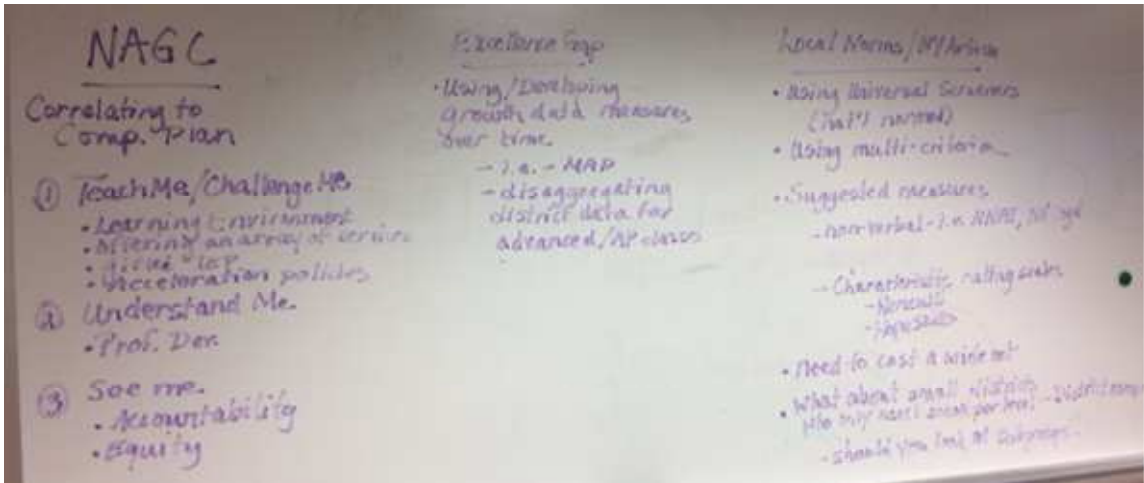 NAGC
Correlating to
Comp. Plan
① Teach Me/Challenge Me
• Learning Environment
• Offering an array of services
•
• Acceleration policies
② Understand Me.
• Prof. Dev.
③ See me.
• Accountability
• Equity
Excellence Gap
• Using/Developing
growth data measures
over time.
- i.e. - MAP
- disaggregating
district data for
advanced/AP classes
Local Norms/
• Using Universal Screeners
(that's normed)
• Using multi-criteria
• Suggested measures
- non verbal - i.e. NNAT,
- Characteristic rating scales
• Need to cast a wide net
• What about small districts
who only have 1
- should you look at subgroups